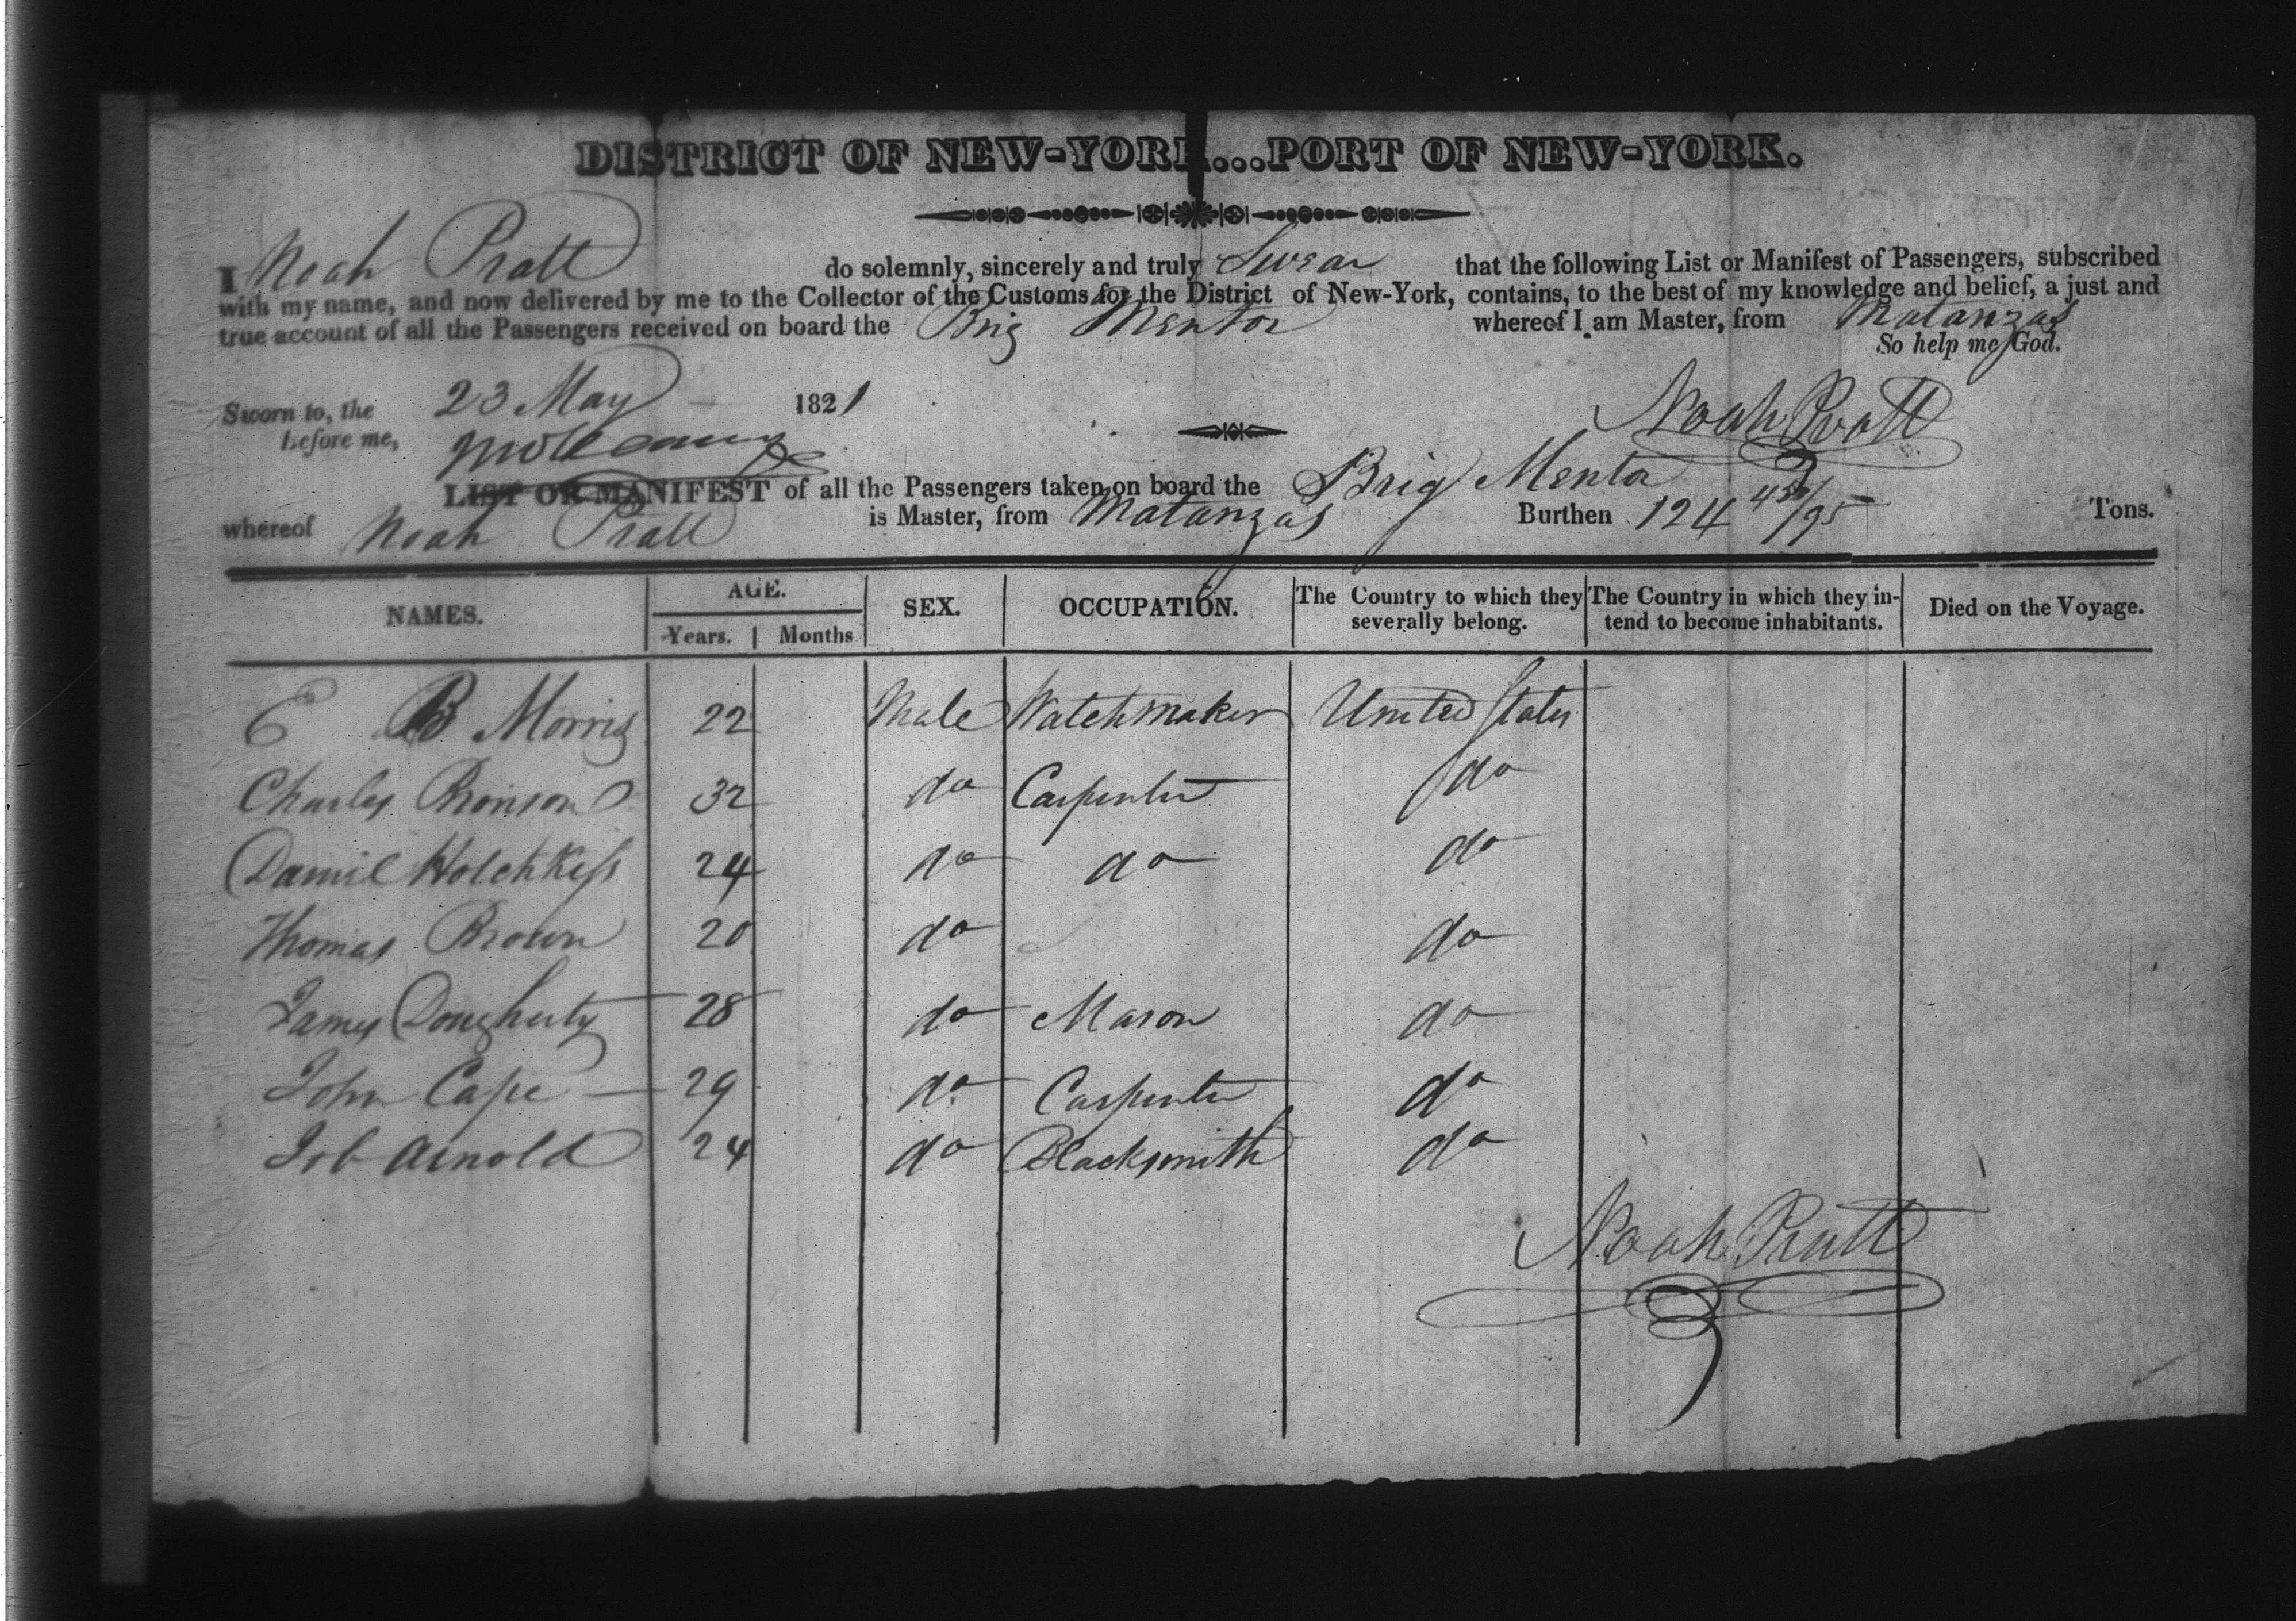 DISTRICT OF NEW-YORK...PORT OF NEW-YORK.
I Noah Pratt do solemnly, sincerely and truly Swear that the following List or Manifest of Passengers, subscribed
with my name, and now delivered by me to the Collector of the Customs for the District of New-York, contains, to the best of my knowledge and belief, a just and
true account of all the Passengers received on board the Brig Mentor whereof I am Master, from Matanzas
So help me God.
Sworn to, the 23 May 1821
before me,
Noah Pratt
LIST OR MANIFEST of all the Passengers taken on board the Brig Mentor
whereof Noah Pratt is Master, from Matanzas Burthen 124 45/95 Tons.
NAMES. AGE. SEX. OCCUPATION. The Country to which they severally belong. The Country in which they intend to become inhabitants. Died on the Voyage.
Years. Months
E B Morris 22 Male Watchmaker United States
Charles Bronson 32 do Carpenter do
Daniel Hotchkiss 24 do do do
Thomas Brown 20 do do
James Dougherty 28 do Mason do
John Cape 29 do Carpenter do
Job Arnold 24 do Blacksmith do
Noah Pratt